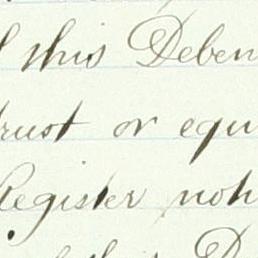 this Deben
trust or equ
Register noth
this D